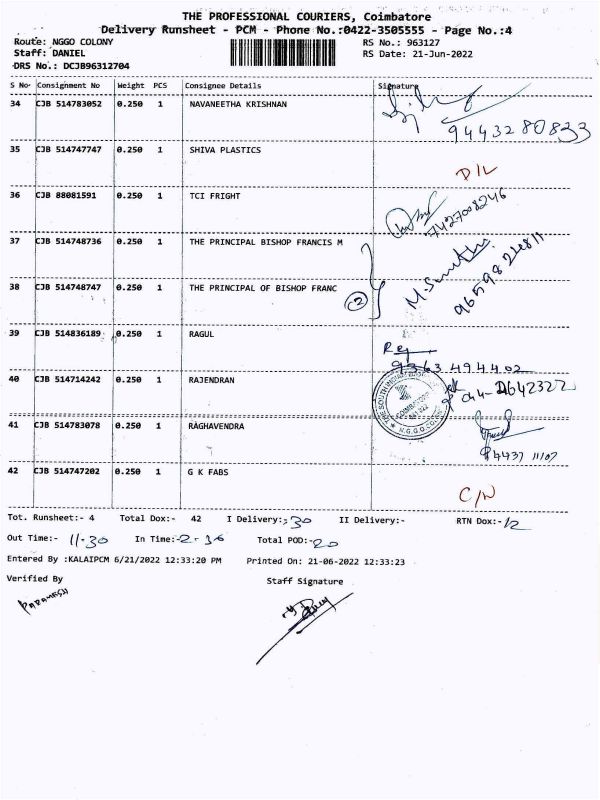 THE PROFESSIONAL COURIERS, Coimbatore
Delivery Runsheet - PCM - Phone No.:0422-3505555 - Page No.:4
Route: NGGO COLONY RS No.: 963127
Staff: DANIEL RS Date: 21-Jun-2022
DRS No.: DCJB96312704
S No Consignment No Weight PCS Consignee Details Signature
34 CJB 514783052 0.250 1 NAVANEETHA KRISHNAN
9443280833
35 CJB 514747747 0.250 1 SHIVA PLASTICS
D/L
36 CJB 88081591 0.250 1 TCI FRIGHT
7427008246
37 CJB 514748736 0.250 1 THE PRINCIPAL BISHOP FRANCIS M
38 CJB 514748747 0.250 1 THE PRINCIPAL OF BISHOP FRANC
2
39 CJB 514836189 0.250 1 RAGUL
9363494402
40 CJB 514714242 0.250 1 RAJENDRAN
COIMBATORE
41 CJB 514783078 0.250 1 RAGHAVENDRA
42 CJB 514747202 0.250 1 G K FABS
C/N
Tot. Runsheet:- 4 Total Dox:- 42 I Delivery:- 30 II Delivery:- RTN Dox:- 12
Out Time:- 11-30 In Time:- 2-30 Total POD:- 20
Entered By :KALAIPCM 6/21/2022 12:33:20 PM Printed On: 21-06-2022 12:33:23
Verified By Staff Signature
PARAMESH